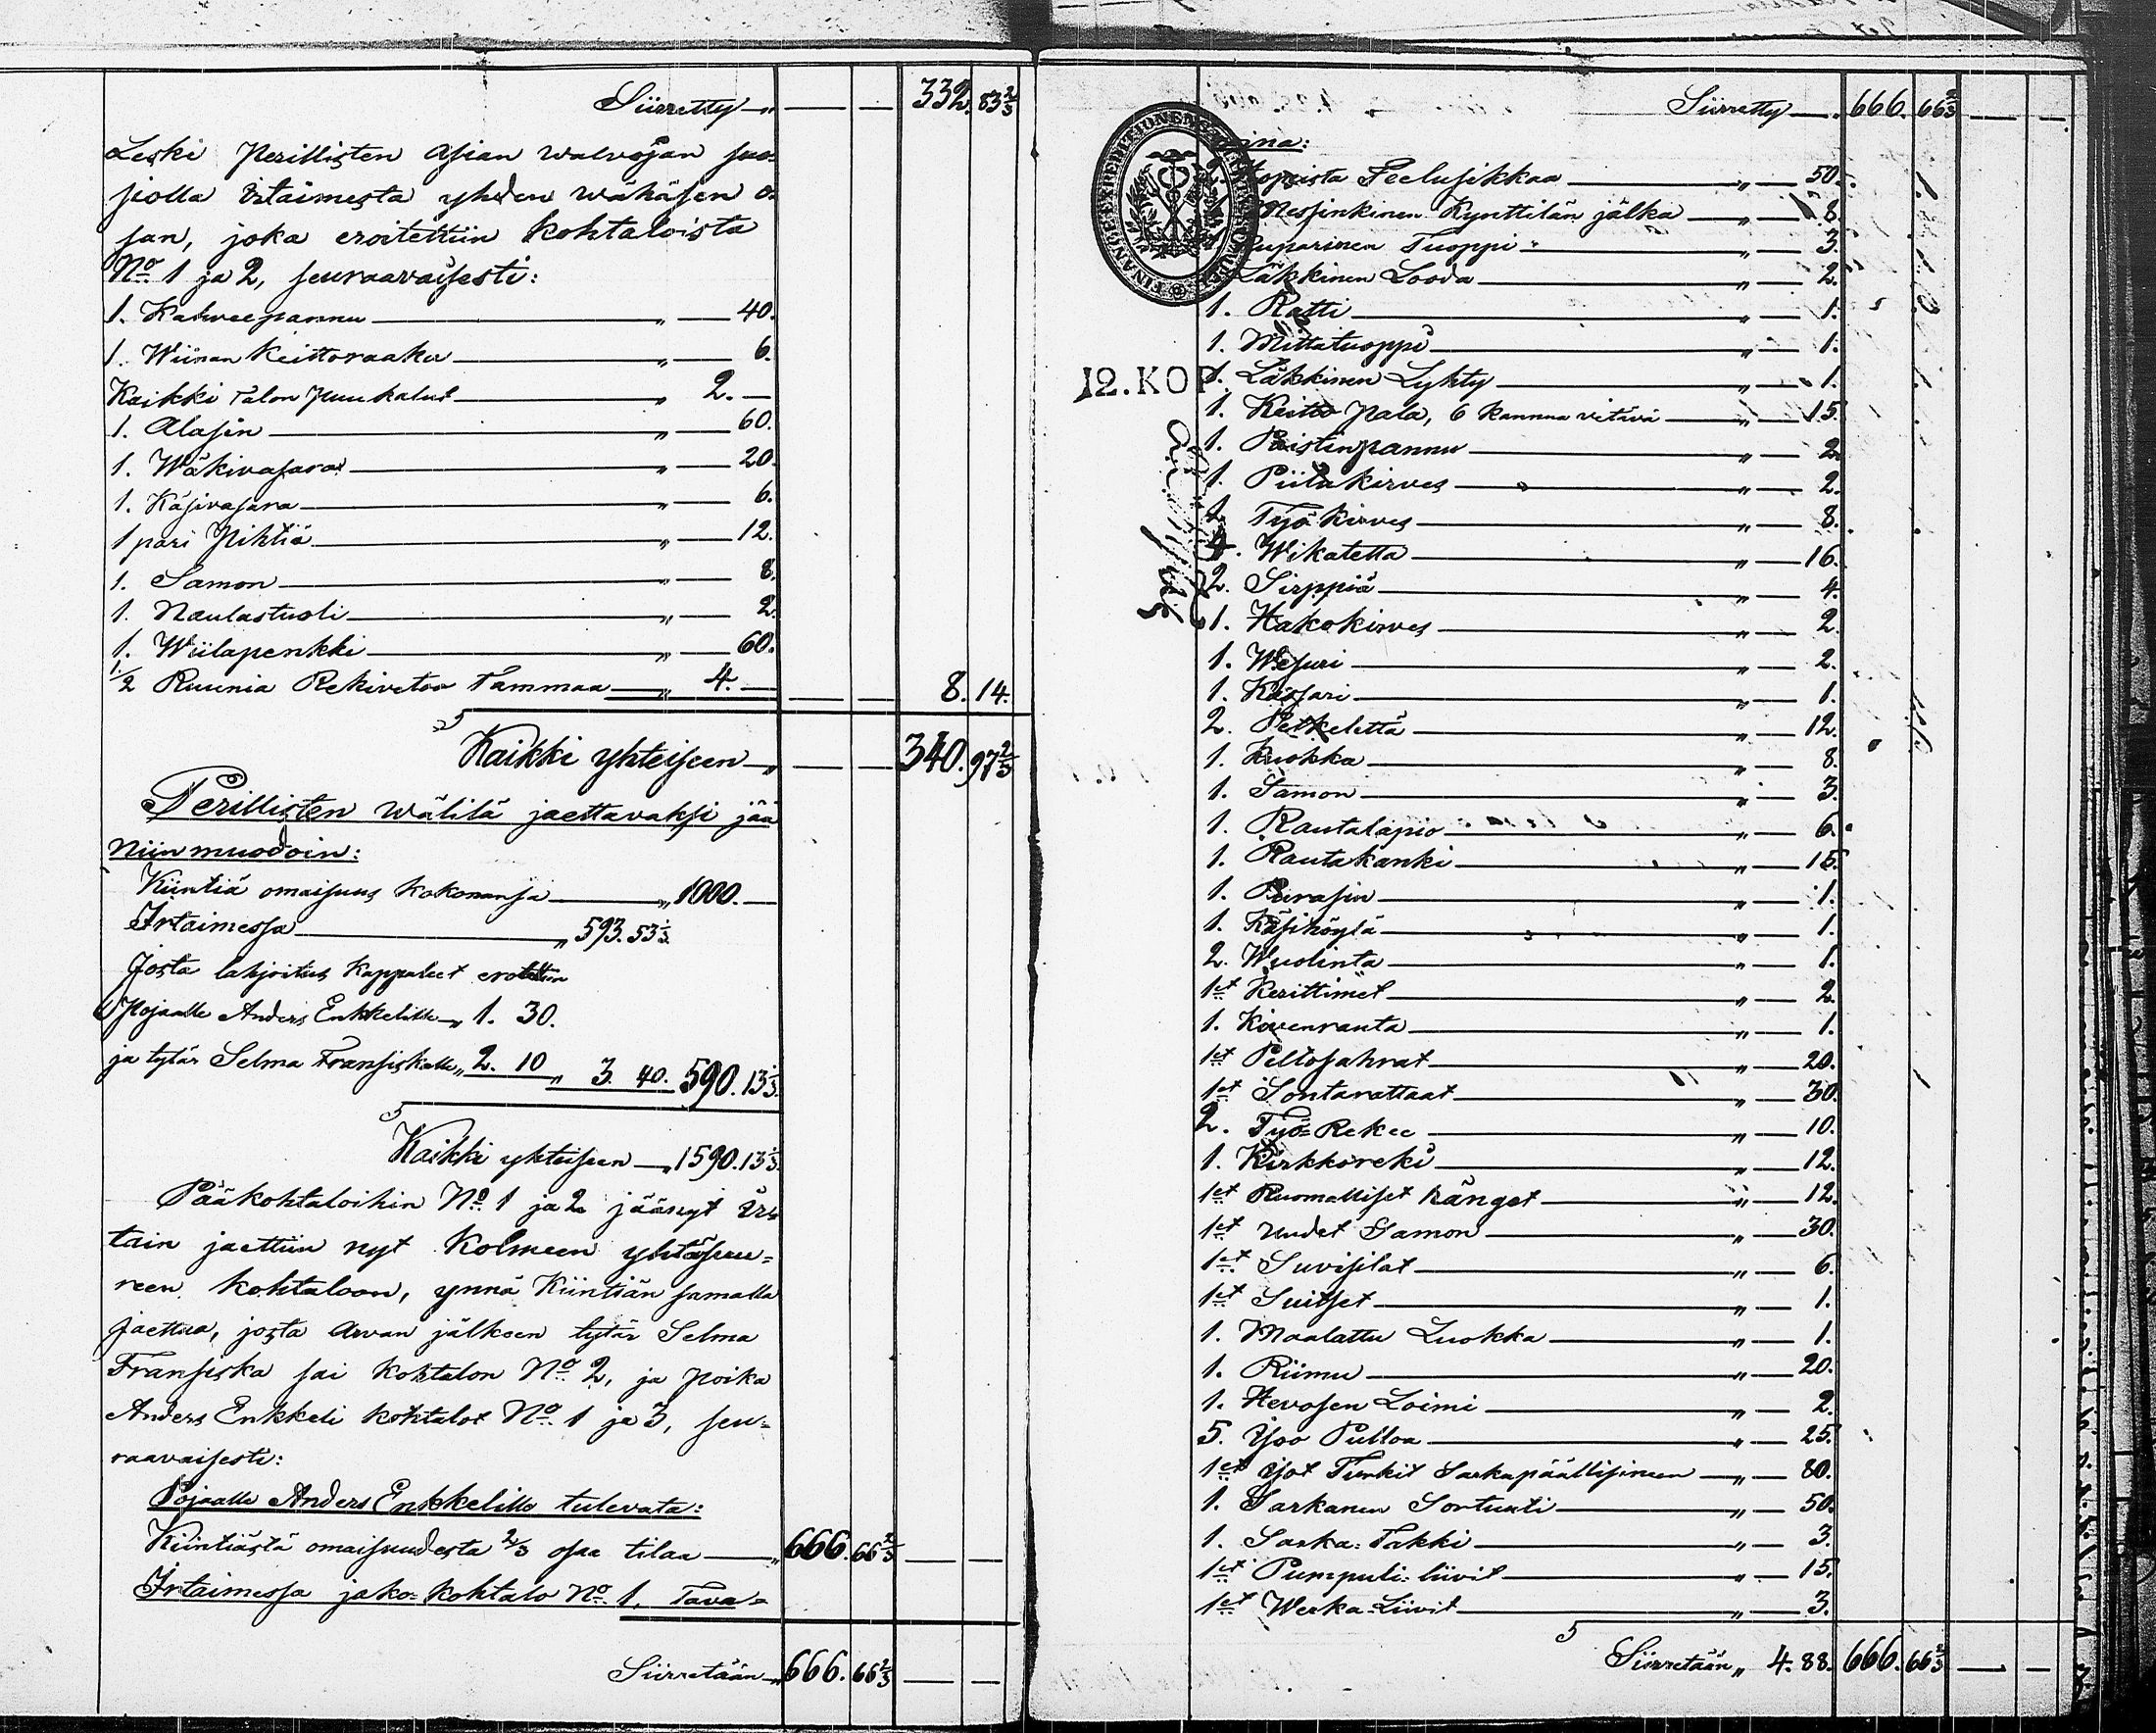 Siirretty „ — — 332. 83 2/3
Leski Perillisten Asian walvojan suo-
siolla Irtaimesta yhden wähäsen o-
san, joka eroitettiin kohtaloista
No 1 ja 2, seuraavaisesti:
1. Kahveepannu „ — 40.
1. Wiinan keittoraaka „ — 6.
Kaikki Talon Puukalut „ 2. —
1. Alasin „ — 60.
1. Wäkivasara „ — 20.
1. Käsivasara „ — 6.
1 pari Pihtiä „ — 12.
1. Samon „ — 8.
1. Naulastuoli „ — 2.
1. Wiilapenkki „ — 60.
1/2 Ruunia Rekivetoo Tammaa „ 4. — — — 8. 14.
Kaikki yhteiseen „ — — 340. 97 2/3
Perillisten wälilä jaettavaksi jää
niinmuodoin:
Kiintiä omaisuus kokonansa „ 1000. —
Irtaimessa „ 593. 53 1/3
Josta lahjoitus kappaleet erotettiin
Pojaalle Anders Enkkelille „ 1. 30.
ja tytär Selma Fransiskalle „ 2. 10 „ 3. 40. 590. 13 1/3
Kaikki yhteiseen „ 1590. 13 1/3
Pääkohtaloihin No 1 ja 2 jäänyt Ir-
tain jaettiin nyt Kolmeen yhtäsuu-
reen kohtaloon, ynnä Kiintiän samalla
jaettua, josta Arvan jälkeen tytär Selma
Fransiska sai kohtalon No 2, ja poika
Anders Enkkeli kohtalot No 1 ja 3, seu-
raavaisesti:
Pojaalle Anders Enkkelille tulevata:
Kiintiästä omaisuudesta 2/3 osaa tilaa „ 666. 66 2/3 — —
Irtaimessa jako-kohtalo No 1. Tava-
Siirretään „ 666. 66 2/3 — —
Siirretty — „ 666. 66 2/3 — —
FINANCE EXPEDITIONENS
12. KOP.
Feelusikkaa „ — 50.
Messinkinen Kynttilän jälka „ — 8.
Kuparinen Tuoppi „ — 3.
Läkkinen Looda „ — 2.
1. Ratti „ — 1.
1. Mittatuoppi „ — 1.
1. Läkkinen Lyhty „ — 1.
1. Keitto Pata, 6 kannua vetävä „ — 15.
1. Paistinpannu „ — 2.
1. Piilukirves „ — 2.
Työkirves „ — 8.
4. Wikatetta „ — 16.
2. Sirppiä „ — 4.
1. Hakokirves „ — 2.
1. Wesuri „ — 2.
1. Kassari „ — 1.
2. Petkelettä „ — 12.
1. Kuokka „ — 8.
1. Samon „ — 3.
1. Rautalapio „ — 6.
1. Rautakanki „ — 15.
1. Purasin „ — 1.
1. Käsihöylä „ — 1.
2. Wuolinta „ — 1.
1et Kerittimet „ — 2.
1. Kivenrauta „ — 1.
1et Peltosahrat „ — 20.
1et Sontarattaat „ — 30.
2. Työ-Rekee „ — 10.
1. Kirkkoreki „ — 12.
1et Ruomalliset Länget „ — 12.
1et uudet Samon „ — 30.
1et Suvisilat „ — 6.
1et Suitset „ — 1.
1. Maalattu Luokka „ — 1.
1. Riimu „ — 20.
1. Hevosen Loimi „ — 2.
5. Isoo Pulloa „ — 25.
1et Isot Turkit Sarkapäällisineen „ — 80.
1. Sarkanen Sortuuti „ — 50.
1. Sarka-Takki „ — 3.
1et Pumpuli-liivit „ — 15.
1et Werka-Liivit „ — 3.
Siirretään „ 4. 88. 666. 66 2/3 — —